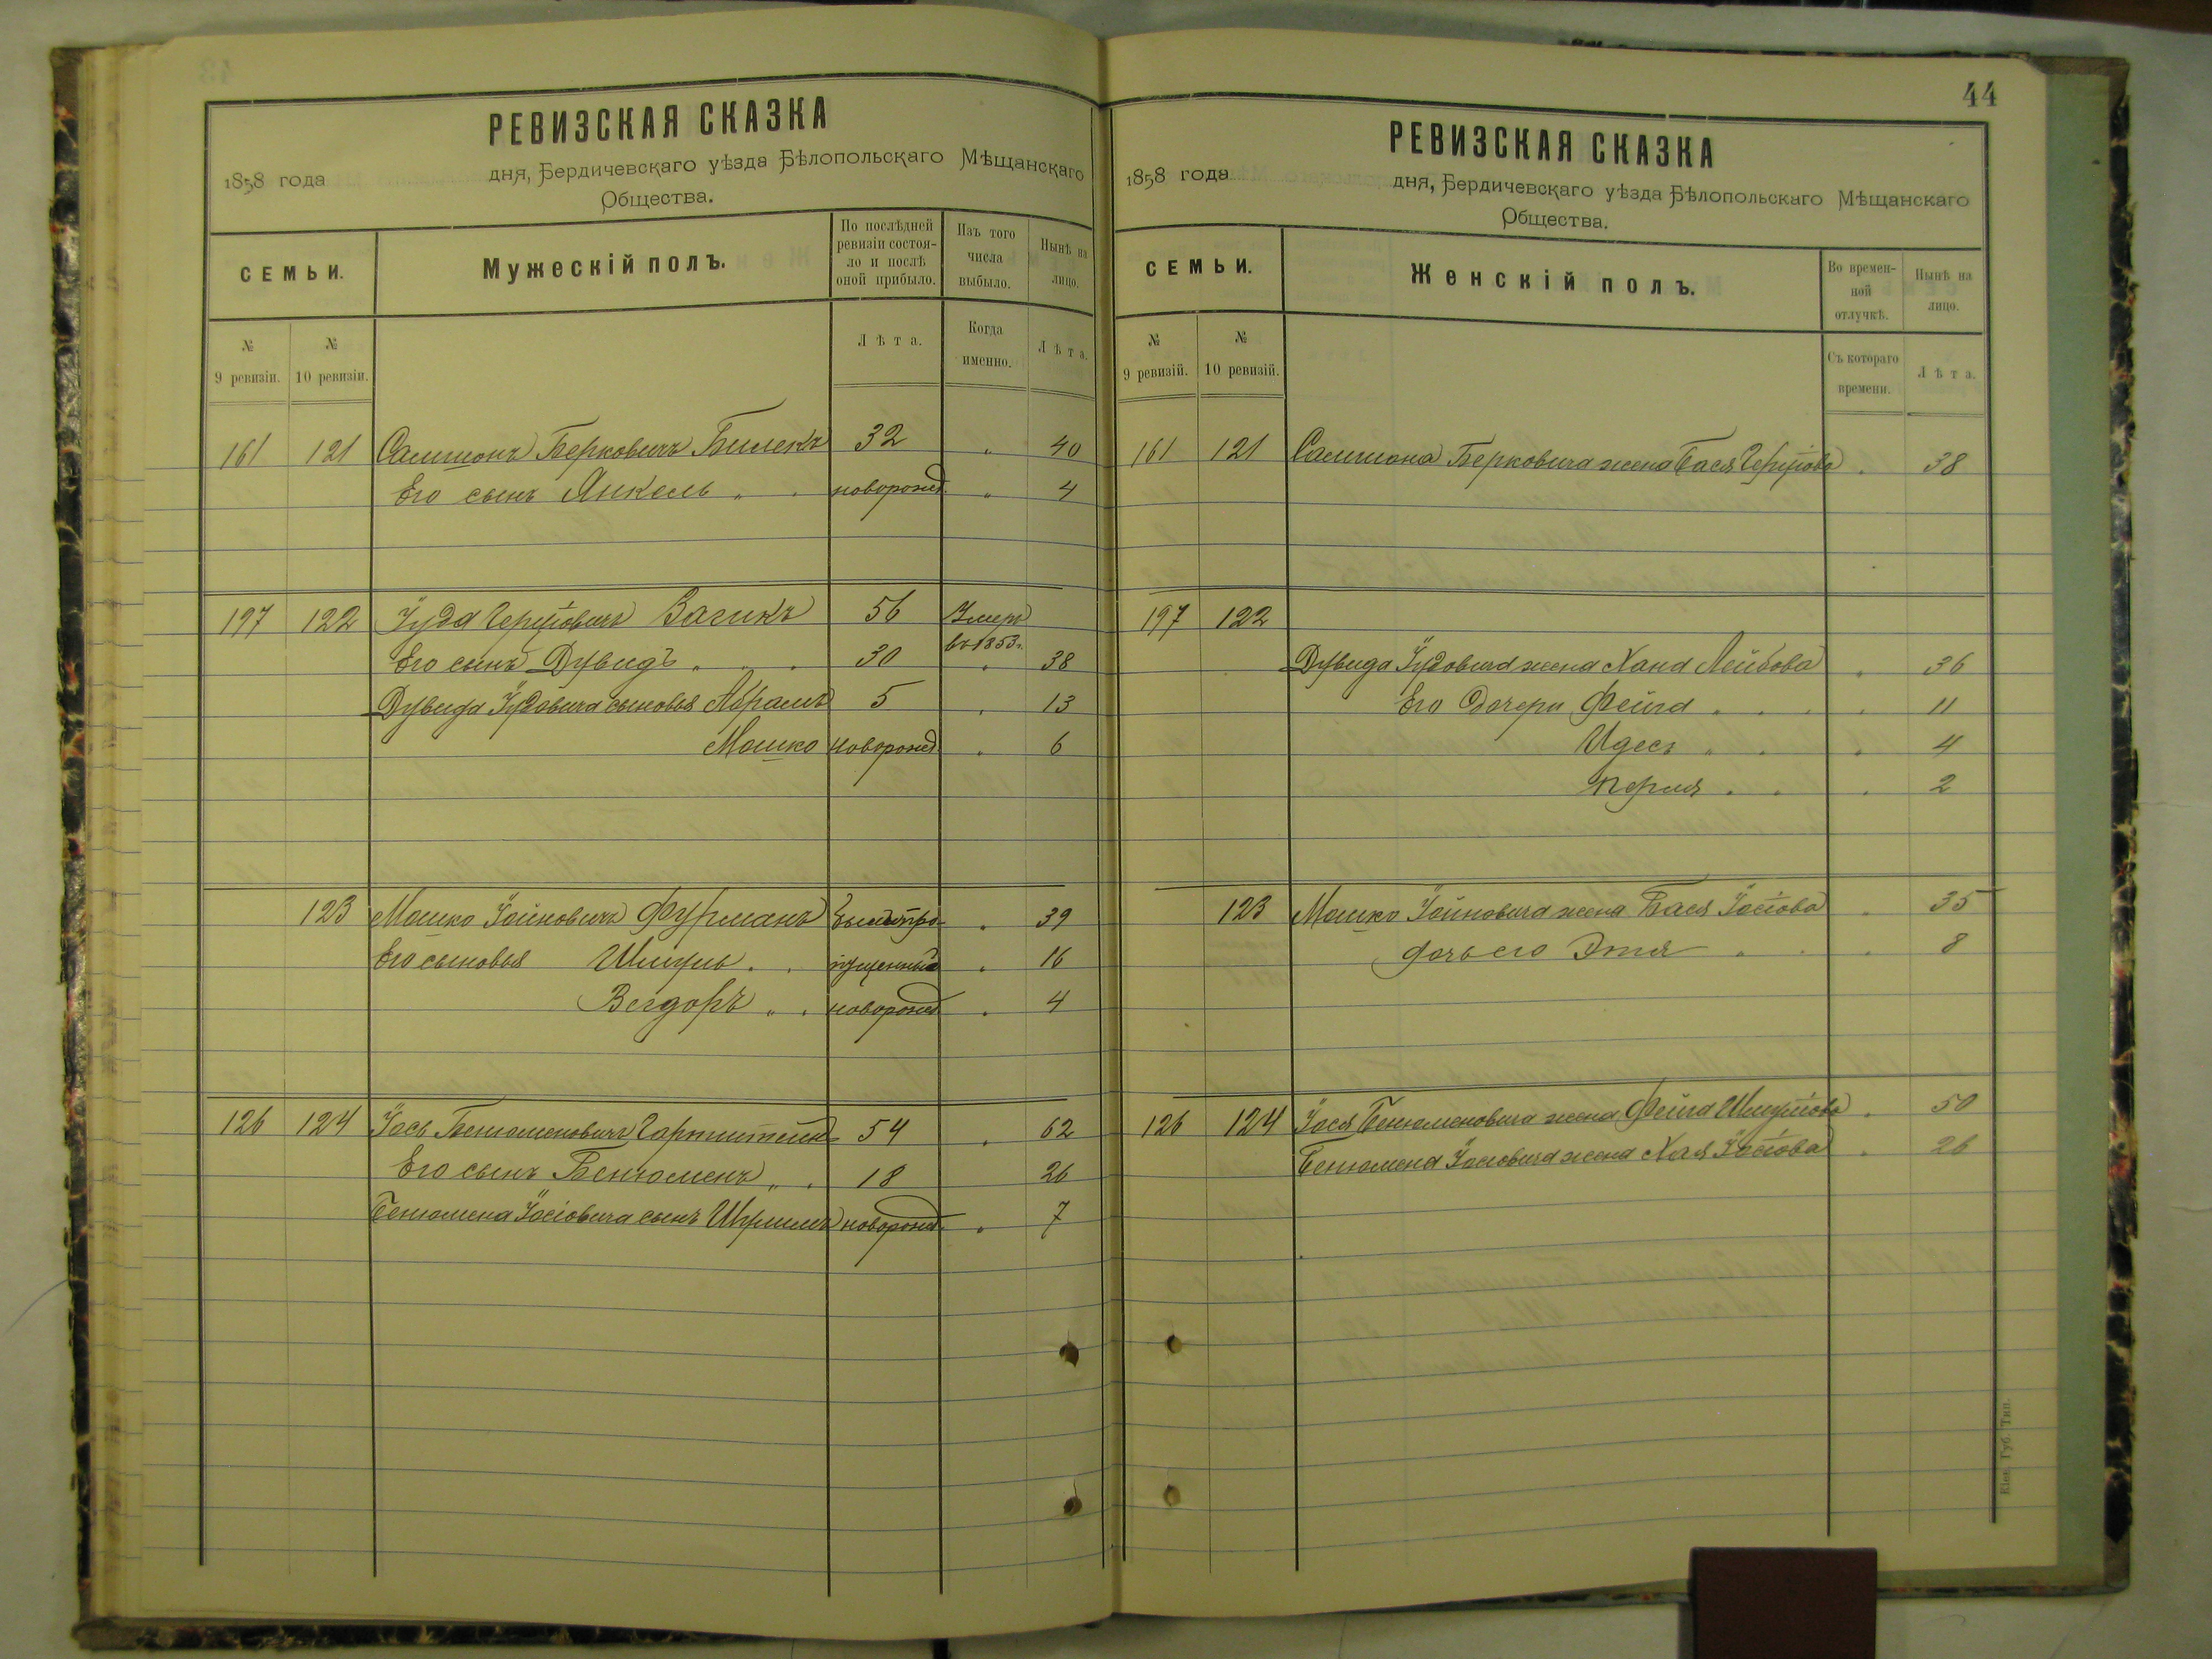 РЕВИЗСКАЯ СКАЗКА
1858 года дня, Бердичевскаго уѣзда Бѣлопольскаго Мѣщанскаго
Общества.
СЕМЬИ.
Мужескій полъ.
По послѣдней ревизіи состояло и послѣ оной прибыло.
Изъ того числа выбыло.
Нынѣ на лицо.
№ 9 ревизіи.
№ 10 ревизіи.
Лѣта.
Когда именно.
Лѣта.
161 121 Беркович Билекъ 32 " 40
Его сынъ Янкель " . новорожд. " 4
197 122 Іуда Гершовичъ 56 Умеръ въ 1853 г.
Его сынъ Дувидъ . . . 30 " 38
Дувида Іудовича сыновья Абрамъ 5 . 13
Мошко новорожд. . 6
123 Мошко Іойновичъ Фурманъ бывш. про- . 39
Его сыновья Шмуль . . пущенный . 16
" . новорожд . 4
126 124 Іось Бенюменовичъ 54 . 62
Его сынъ Бенюменъ " . 18 26
Бенюмена Іосіовича сынъ новорожд . 7
44
РЕВИЗСКАЯ СКАЗКА
1858 года дня, Бердичевскаго уѣзда Бѣлопольскаго Мѣщанскаго
Общества.
СЕМЬИ.
Женскій полъ.
Во временной отлучкѣ.
Нынѣ на лицо.
№ 9 ревизій.
№ 10 ревизій.
Съ котораго времени.
Лѣта.
161 121 Берковича жена Бася Гершова . 38
197 122
Дувида Іудовича жена Хана Лейбова . 36
Его дочери Фейга . . . . 11
Идесъ " . . 4
Перля . . . 2
123 Мошко Іойновича жена Бася Іосіова . 35
дочь его Этя . . . 8
126 124 Іося Бенюменовича жена Фейга Шмуліова . 50
Бенюмена Іосіовича жена Хая Іосіова . 26
Кіев. Губ. Тип.